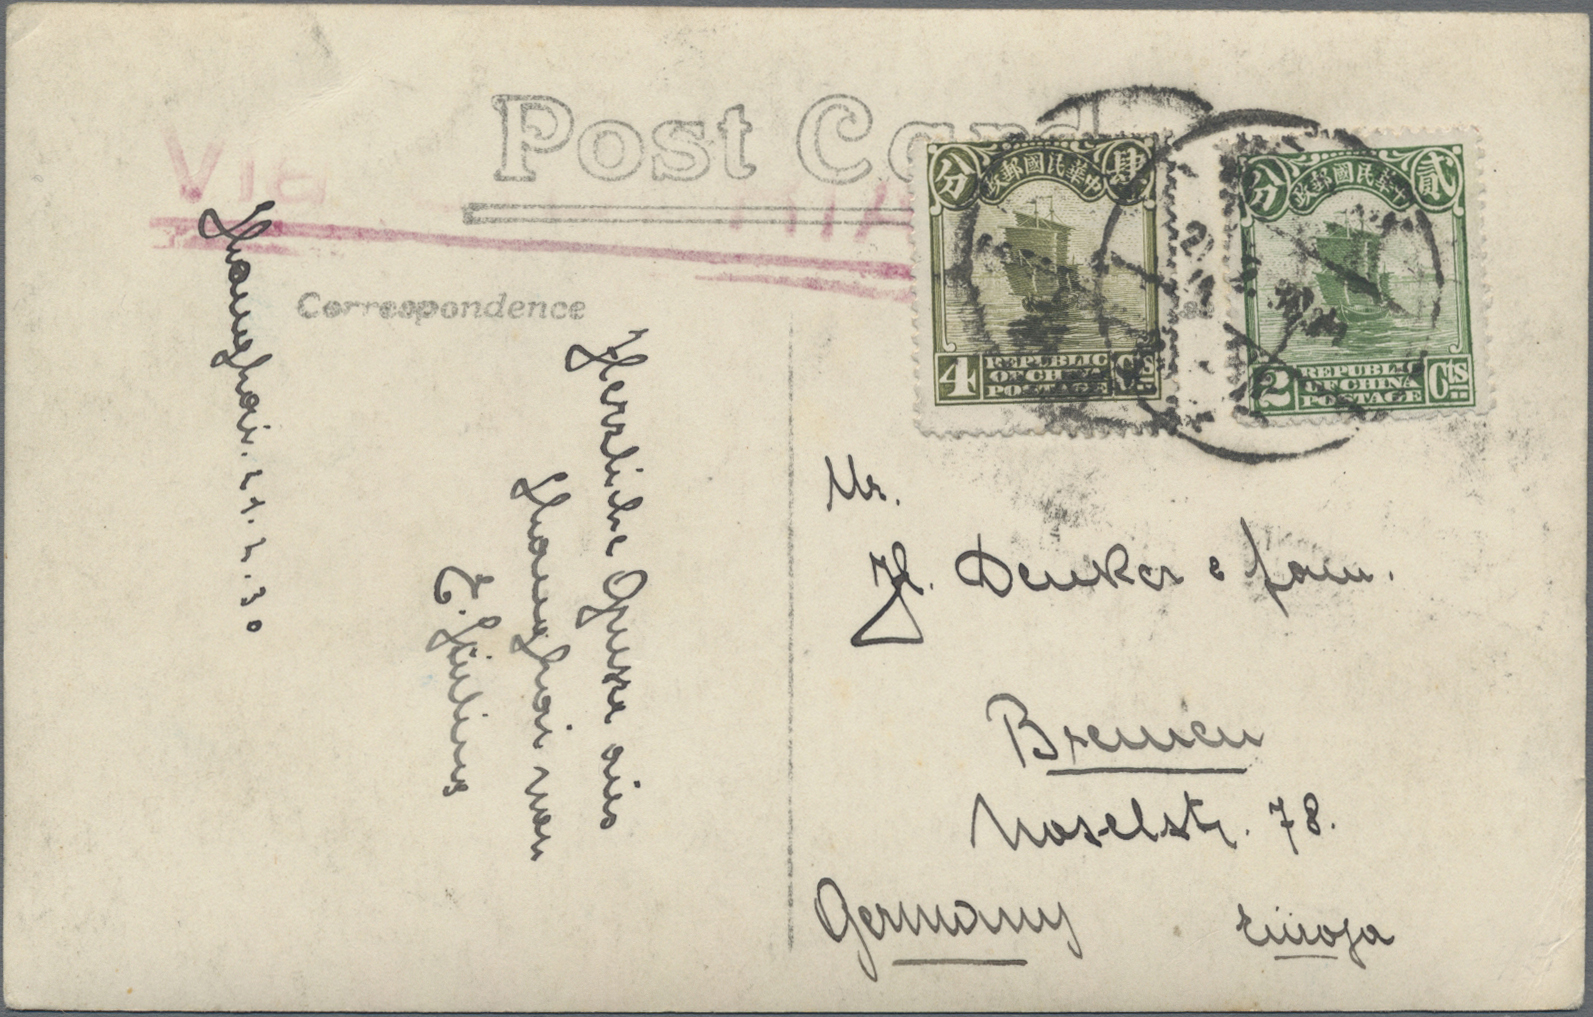 Post Card
VIA
Correspondence
Shanghai. 21. 2. 30
Herzliche Grüsse aus
Shanghai von
分 中華民國郵政 肆
4 REPUBLIC OF CHINA POSTAGE Cts
分 中華民國郵政 貳
2 REPUBLIC OF CHINA POSTAGE Cts
Mr.
H. Denker & fam.
Bremen
Moselstr. 78.
Germany Europa